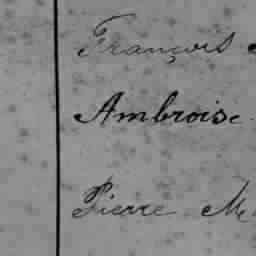 François
Ambroise
Pierre M